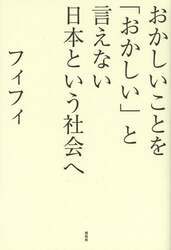 おかしいことを
「おかしい」と
言えない
日本という社会へ
フィフィ